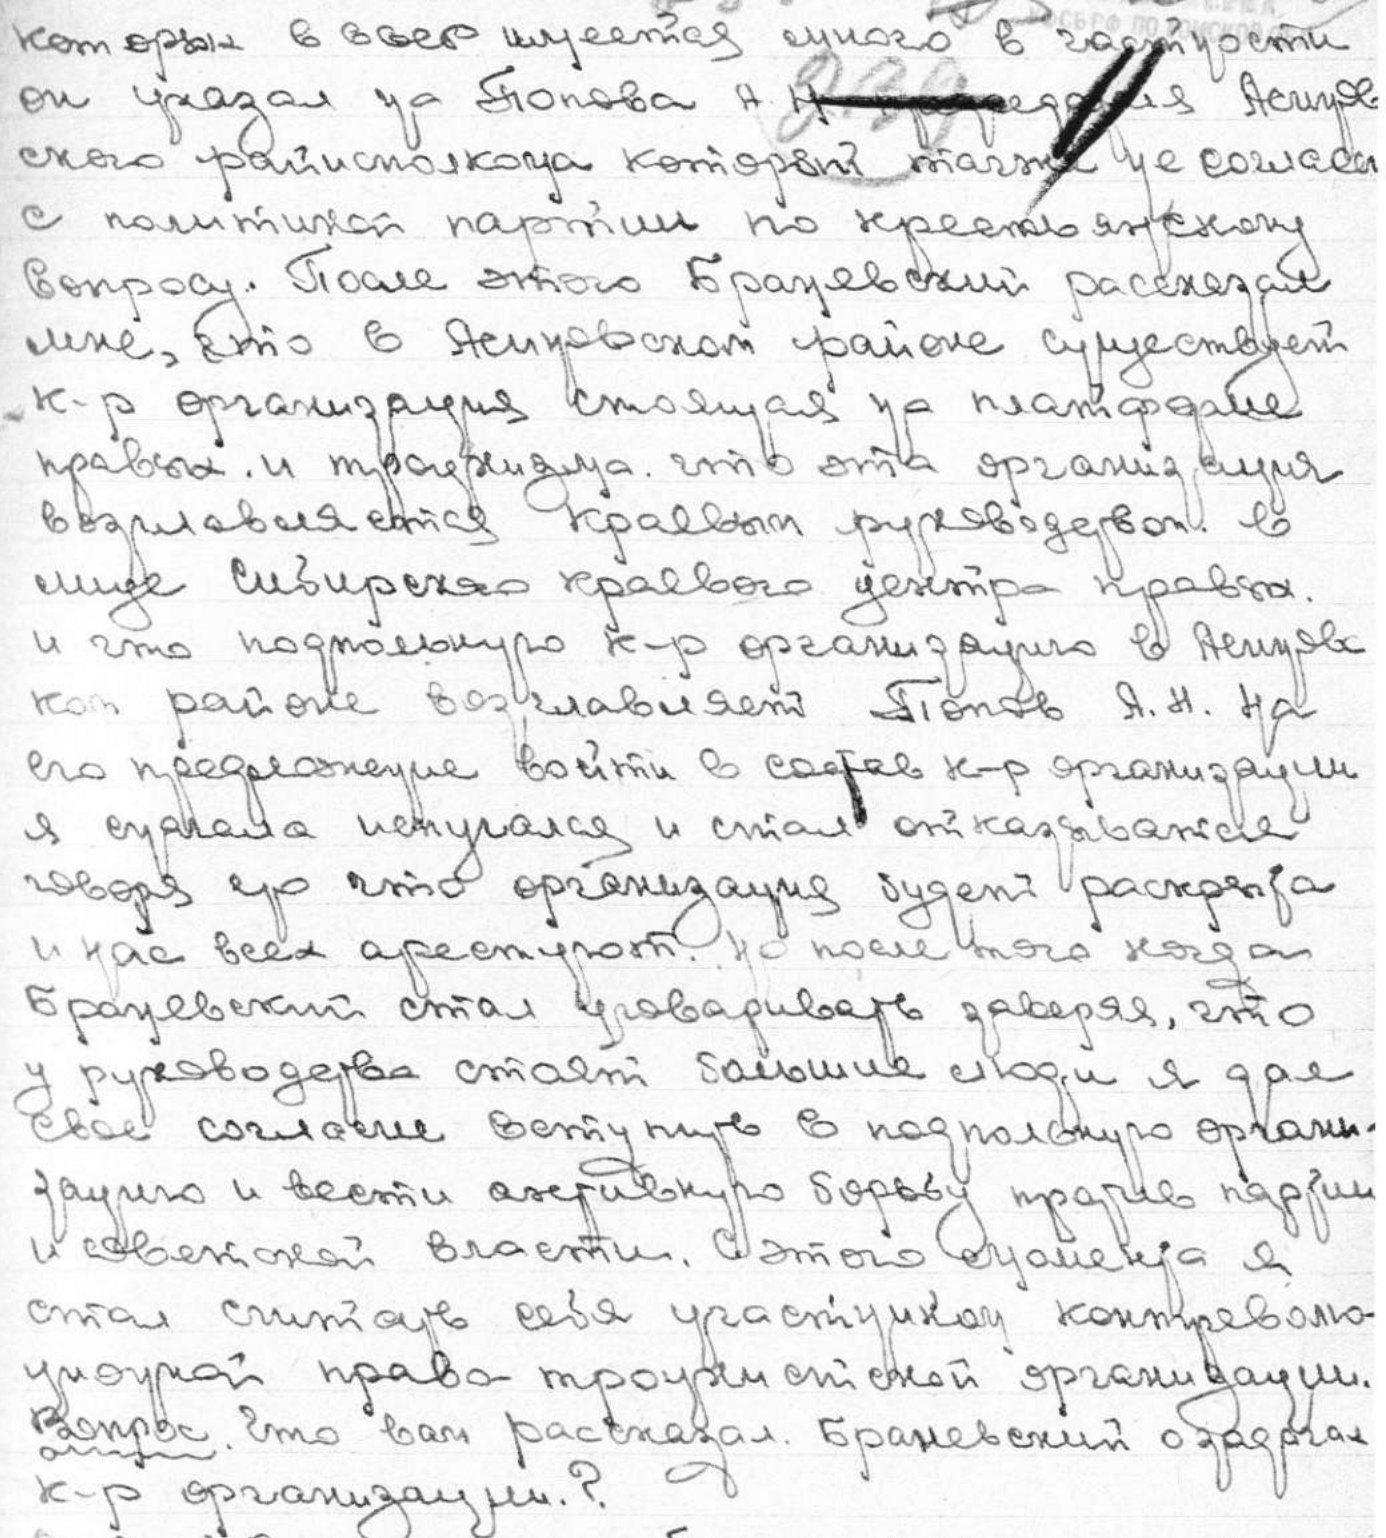 которых в ВСССР имеется много в частности
он указал на Попова А. Н. председателя Асинов
ского райисполкома который также не согласен
с политикой партии по крестьянскому
вопросу. После этого Браневский рассказал
мне, что в Асиновском районе существует
к-р организация стоящая на платформе
правых. и троцкизма. что эта организация
возглавляется краевым руководством. в
лице Сибирского краевого центра правых.
и что подпольную к-р организацию в Асиновс
ком районе возглавляет Попов А. Н. На
его предложение войти в состав к-р организации
я сначала испугался и стал отказываться
говоря ему что организация будет раскрыта
и нас всех арестуют. Но после того когда
Браневский стал уговаривать заверяя, что
у руководства стоят большие люди я дал
свое согласие вступить в подпольную органи-
зацию и вести активную борьбу против партии
и советской власти. С этого момента я
стал считать себя участником контреволю-
ционной право-троцкистской организации.
Вопрос. Что вам рассказал. Браневский о задачах
к-р организации.?